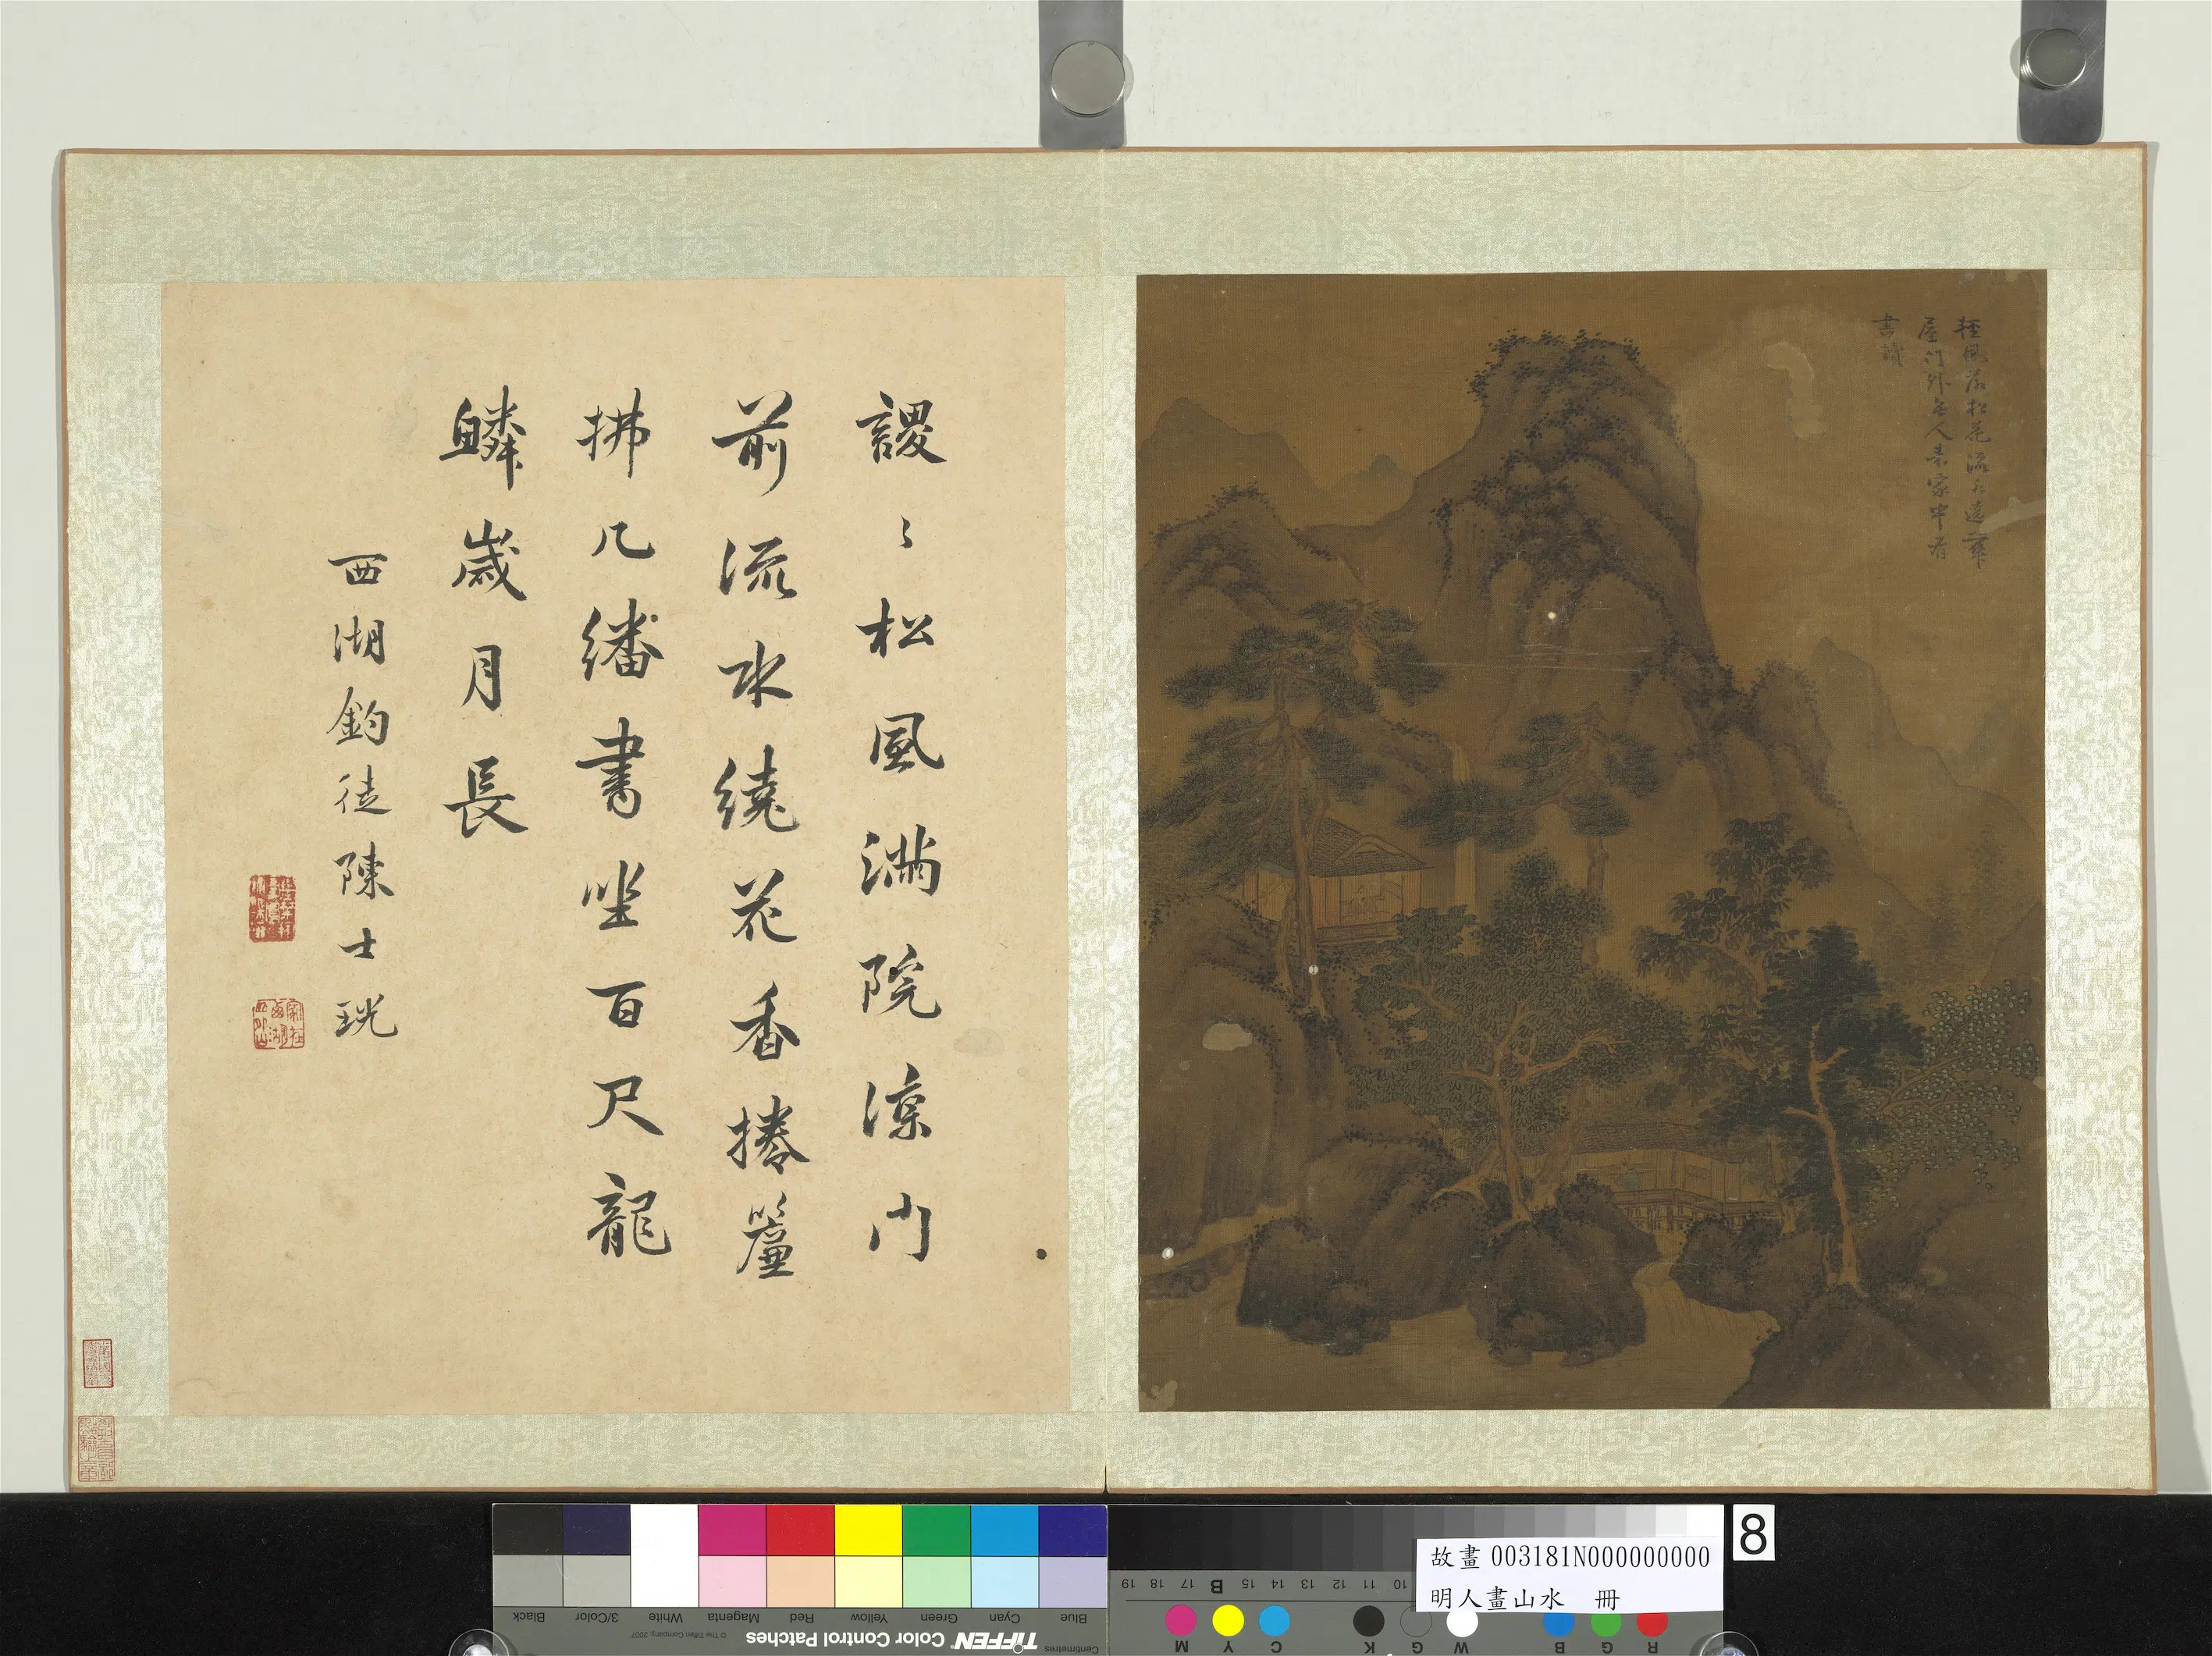 輕風落松花流水遶華
屋門外無人來家中有
書讀
謖〻松風滿院涼門
前流水繞花香捲簾
拂几繙書坐百尺龍
鱗歲月長
西湖釣徒陳士珖
8
故畫 003181N000000000
明人畫山水 冊
Blue
Cyan
Green
Yellow
Red
Magenta
White
3/Color
Black
Centimetres
TIFFEN Color Control Patches
© The Tiffen Company, 2007
10 11 12 13 14 15 B 17 18 19
R G B W G K C Y M